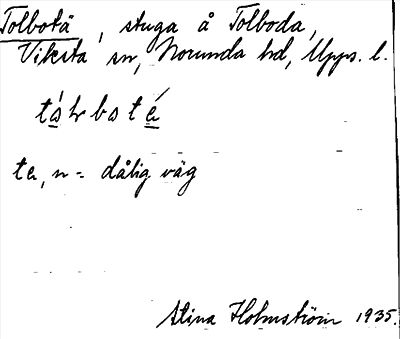 Tolbotä, stuga å Tolboda,
Viksta sn, Norunda hd, Upps. l.
tɑ́ƚbɷté
te, n = dålig väg
Stina Holmström 1935.